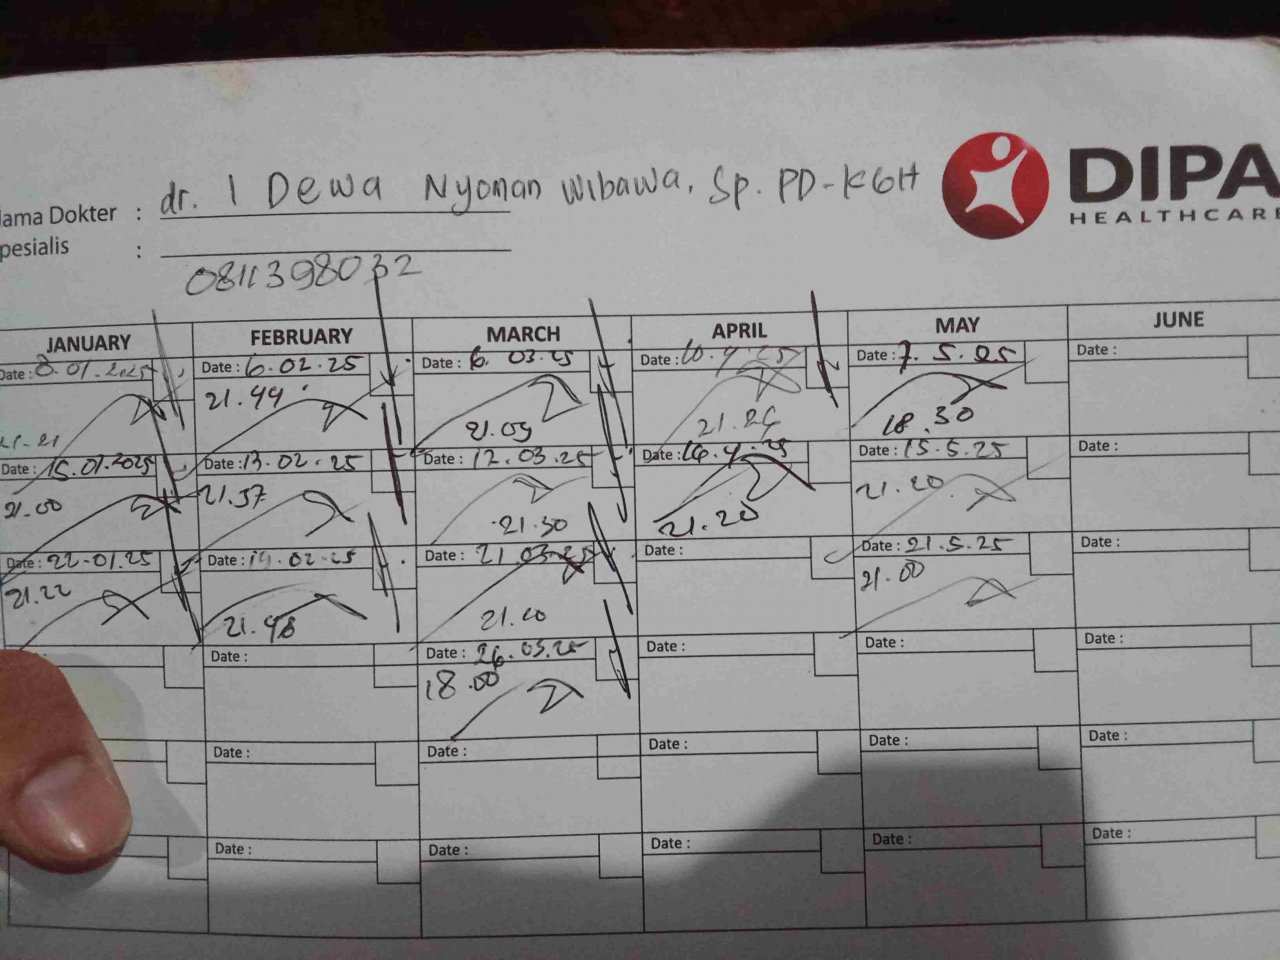 DIPA
HEALTHCARE
ama Dokter : dr. I Dewa Nyoman Wibawa, Sp. PD-KGH
pesialis :
0811398032
JANUARY FEBRUARY MARCH APRIL MAY JUNE
Date : 8.01.2025 Date : 6.02.25 Date : 6.03.25 Date : 10.4.25 Date : 7.5.25 Date :
21.21 21.44 21.09 21.24 18.30
Date : 15.01.2025 Date : 13.02.25 Date : 12.03.25 Date : 16.4.25 Date : 15.5.25 Date :
21.00 21.37 21.30 21.20 21.20
Date : 22.01.25 Date : 19.02.25 Date : 21.03.25 Date : Date : 21.5.25 Date :
21.22 21.48 21.20 21.00
Date : Date : 26.03.25 Date : Date : Date :
18.00
Date : Date : Date : Date : Date :
Date : Date : Date : Date : Date :